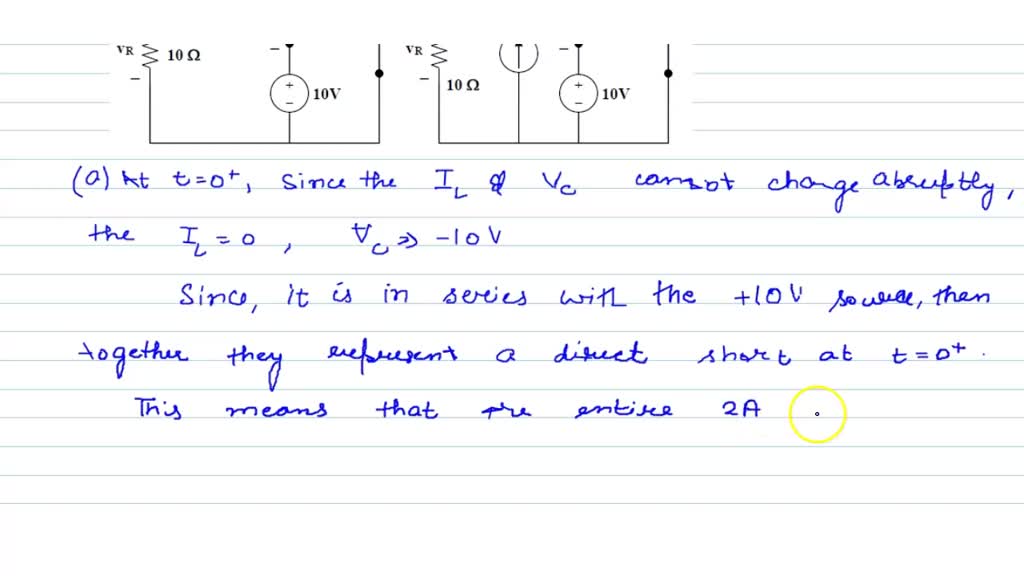 VR 10 Ω − + − 10V VR − 10 Ω − + − 10V
(a) At t=0⁺, Since the I_L & V_C cannot change abruptly,
the I_L = 0 , V_C ⇒ -10V
Since, it is in series with the +10V source, then
together they represent a direct short at t=0⁺.
This means that the entire 2A